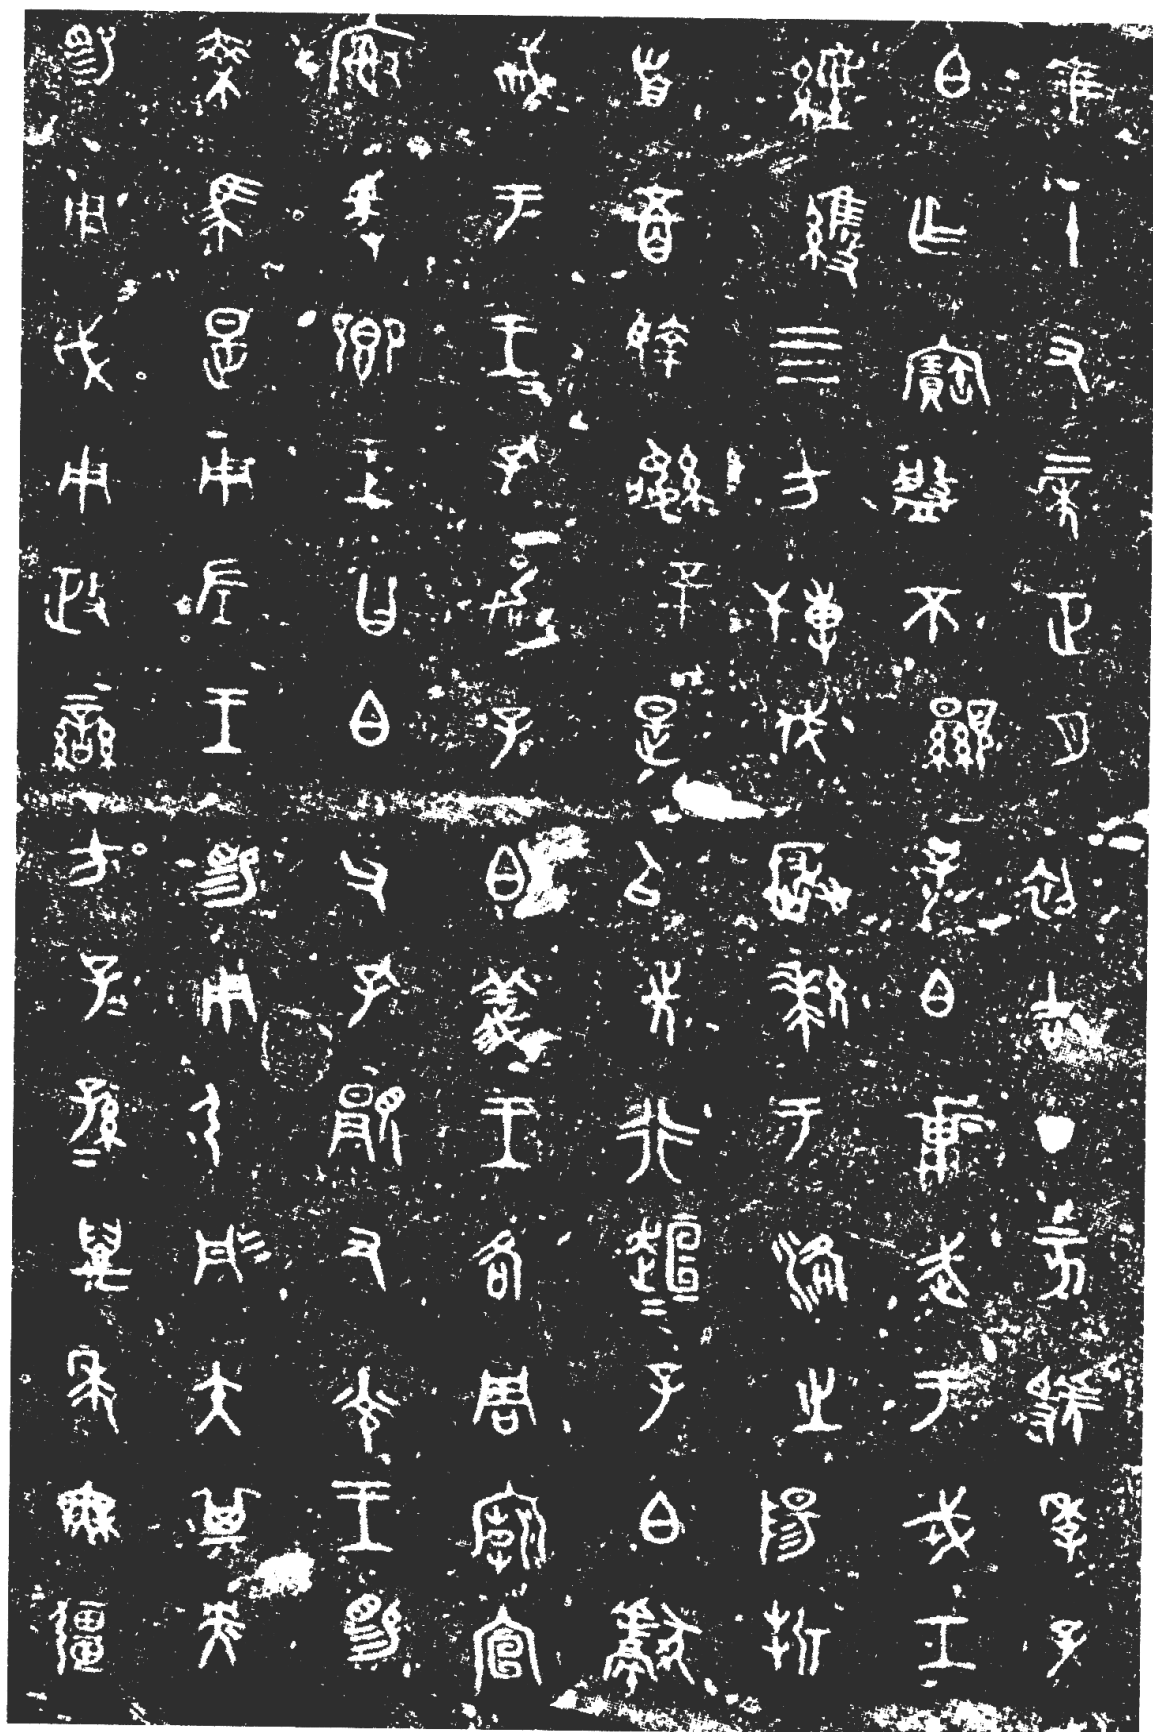 隹十又二年正月初吉丁亥虢季子
白乍寶盤不顯子白壯武于戎工
經維四方搏伐玁狁于洛之陽折
首五百執訊五十是以先行趄=子白獻
馘于王=孔加子白義王各周廟宣
榭爰鄉王曰白父孔顯又光王睗
乘馬是用左王睗用弓彤矢其央
睗用戉用政蠻方子=孫=萬年無疆